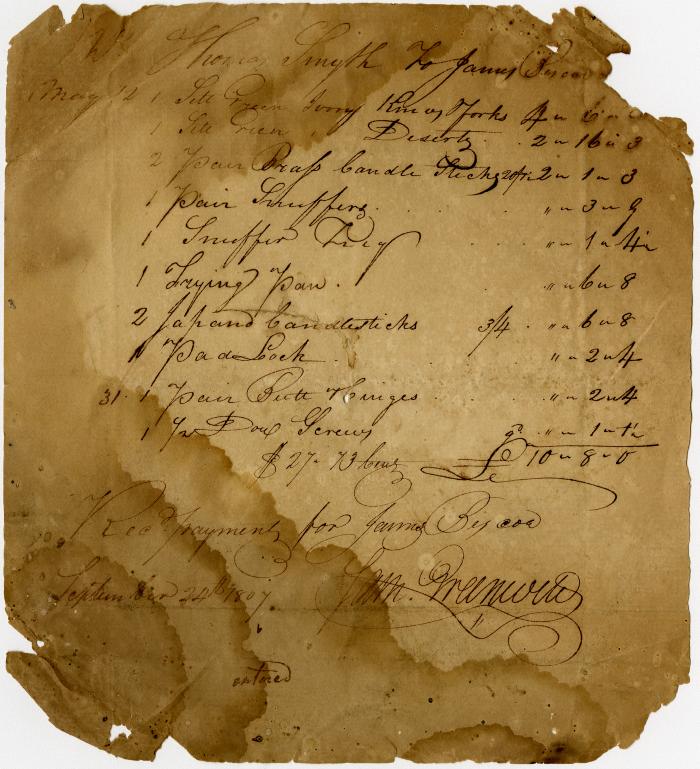 Thomas Smyth To James Biscoe
May 12 1 Sett Green Ivory Knivs & Forks 4 " 6 "
1 Sett Green " Deserts 2 " 16 " 3
2 Pair Brass Candle Sticks 20/7½ 2 " 1 " 3
1 Pair Snuffers " " 3 " 9
1 Snuffer Tray " " 1 " 4½
1 Frying Pan " " 6 " 8
2 Japand Candlesticks 3/4 " " 6 " 8
1 Pad Lock " " 2 " 4
31 1 Pair Butt Hinges " " 2 " 4
1 Doz Screws " " 1 "
$ 27. 73 Cents £ 10 " 8 " 0
Recd payment for James Biscoe
September 24th 1807 Saml.
entered